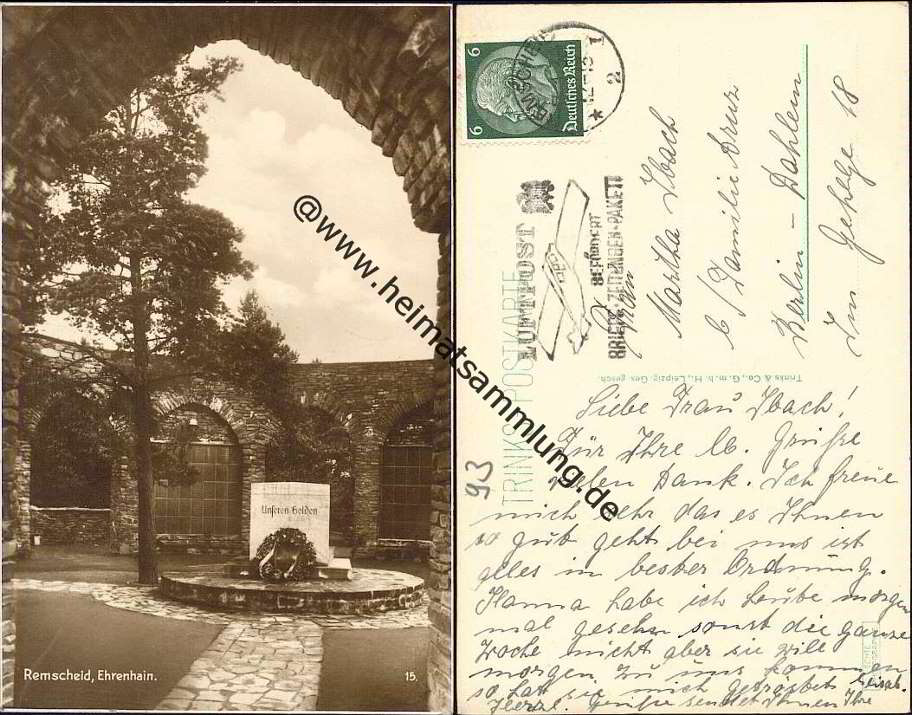 Unseren Helden
Remscheid, Ehrenhain.
15.
@www.heimatsammlung.de
6
6
Deutsches Reich
REMSCHEID
1
2
LUFTPOST
BEFÖRDERT
BRIEFE-ZEITUNGEN-PAKETE
Frau
Martha Ibach
b/ Familie
Berlin - Dahlem
Im Gehege 18
TRINKS-POSTKARTE
Trinks & Co., G. m. b. H., Leipzig. Ges. gesch.
93
Liebe Frau Ibach!
Für Ihre lb. Grüße
vielen Dank. Ich freue
mich sehr das es Ihnen
so gut geht bei uns ist
alles in bester Ordnung.
Hanna habe ich heute morgen
mal gesehen sonst die ganze
Woche nicht aber sie will
morgen zu uns kommen
so hat sie mich getröstet
Herzl. Grüße sendet Ihnen Ihre